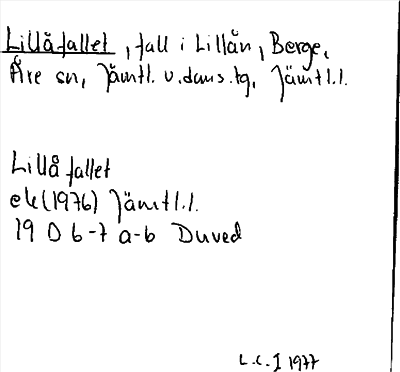 Lillåfallet, fall i Lillån, Berge,
Åre sn, Jämtl. v. doms.tg, Jämtl.l.
Lillåfallet
ek(1976) Jämtl.l.
19 D 6-7 a-b Duved
L.C.J 1977